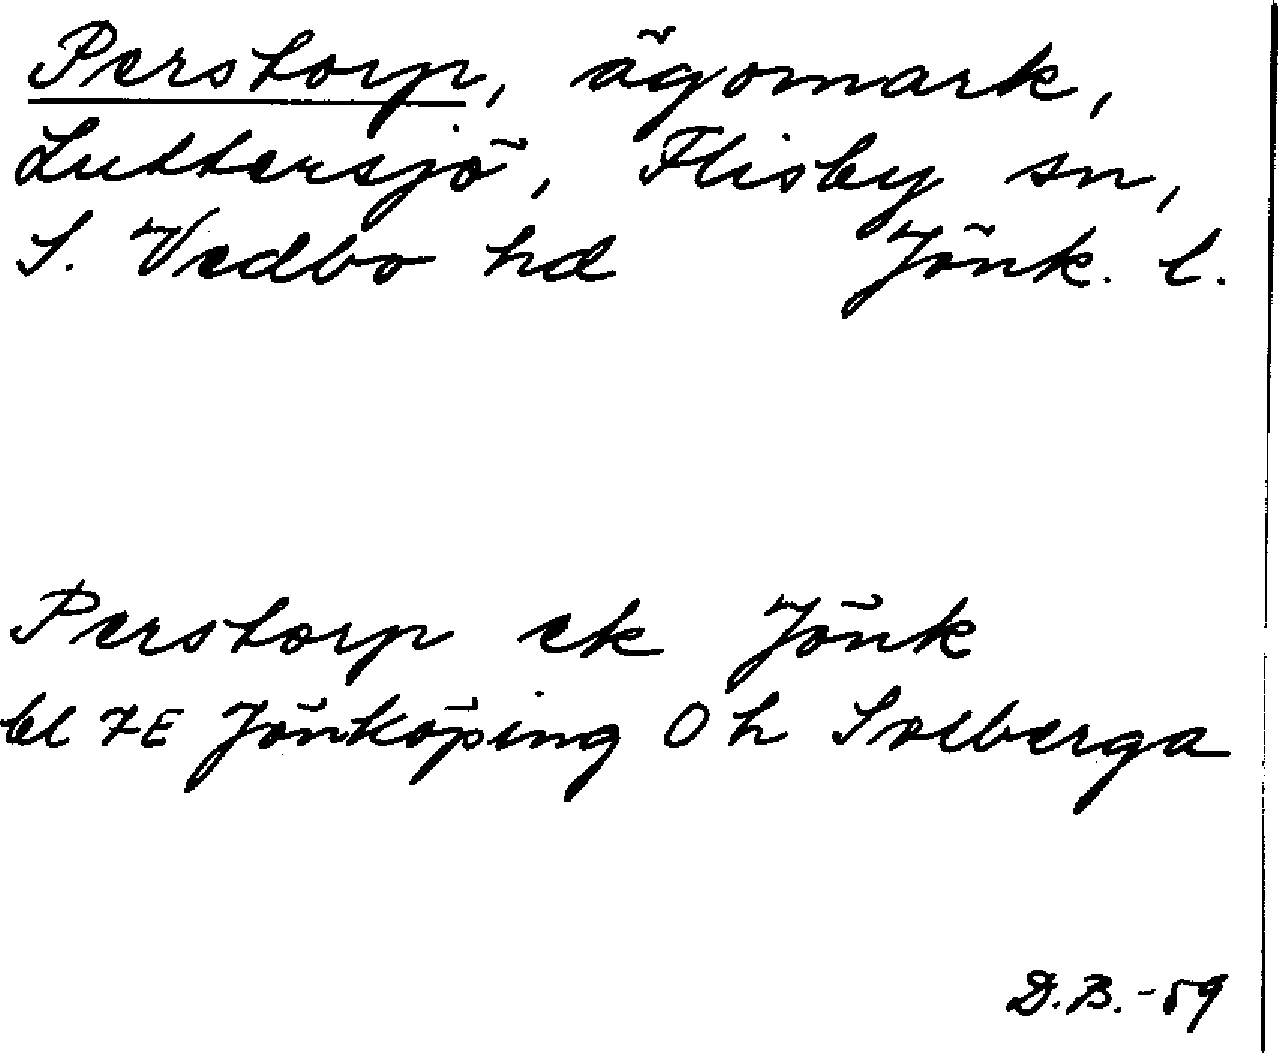 Perstorp, ägomark,
Luttersjö, Flisby sn,
S. Vedbo hd Jönk. l.
Perstorp ek Jönk
bl 7E Jönköping Oh Solberga
D.B.-59